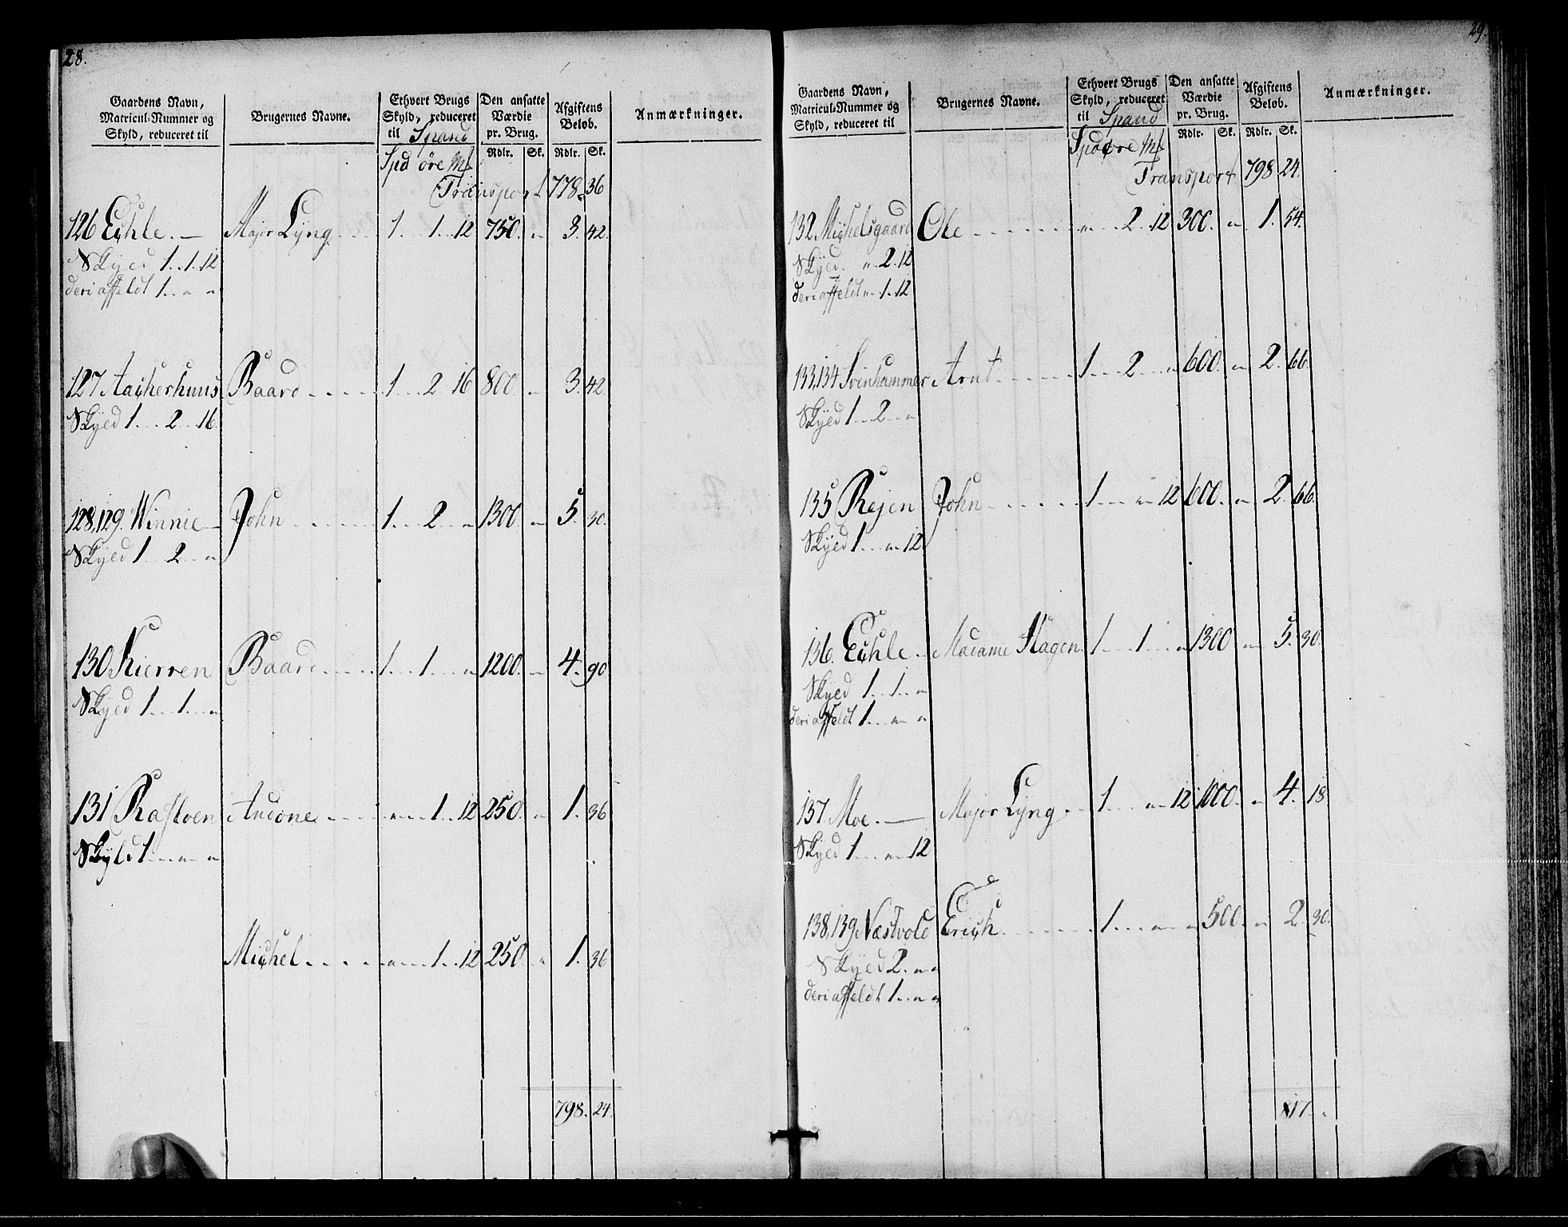 28.
Gaardens Navn, Matricul-Nummer og Skyld, reduceret til
Brugernes Navne.
Ethvert Brugs Skyld, reduceret til Spand
Den ansatte Værdie pr. Brug.
Afgiftens Beløb.
Anmærkninger.
Rdlr. Sk. Rdlr. Sk.
Spd øre Mk
Transport 778. 36
126 Echle. — Major Lyng 1 1 12 750. " 3. 42.
Skyld 1. 1. 12
deri affeldt 1 " "
127 Aacherhuus Baard 1 2 16 800 " 3. 42.
Skyld 1 2 16
128, 129. Winnie — John 1 2 " 1300. " 5. 30.
Skyld 1 2 "
130. Kierren Baard 1 1 " 1200. " 4. 90
Skyld 1 1 "
131 Rastven " 1 12 250. " 1. 36
Skyld 1 " "
Michel " 1 12 250. " 1. 36
798. 24.
29.
Gaardens Navn, Matricul-Nummer og Skyld, reduceret til
Brugernes Navne.
Ethvert Brugs Skyld, reduceret til Spand
Den ansatte Værdie pr. Brug.
Afgiftens Beløb.
Anmærkninger.
Rdlr. Sk. Rdlr. Sk.
Spd øre Mk
Transport 798 24.
132. Michelsgaard Ole " 2. 12 300. " 1. 54.
Skyld. " 2. 12
deri affeldt " 1. 12
133, 134 Svinhammer Arnt 1 2 " 600. " 2. 66.
Skyld 1 2 "
135 Rejen John 1 " 12 600. " 2. 66.
Skyld 1 " 12.
136. Echle. Madame Hagen 1 1 " 1300 " 5. 30.
Skyld 1 1 "
deri affeldt 1 " "
137 Moe. — Major Lyng. 1 " 12 1000. " 4. 18
Skyld 1 " 12
138, 139. Næstvold Erich 1 " " 500 " 2. 30.
Skyld 2. " "
deri affeldt 1 " "
817. "